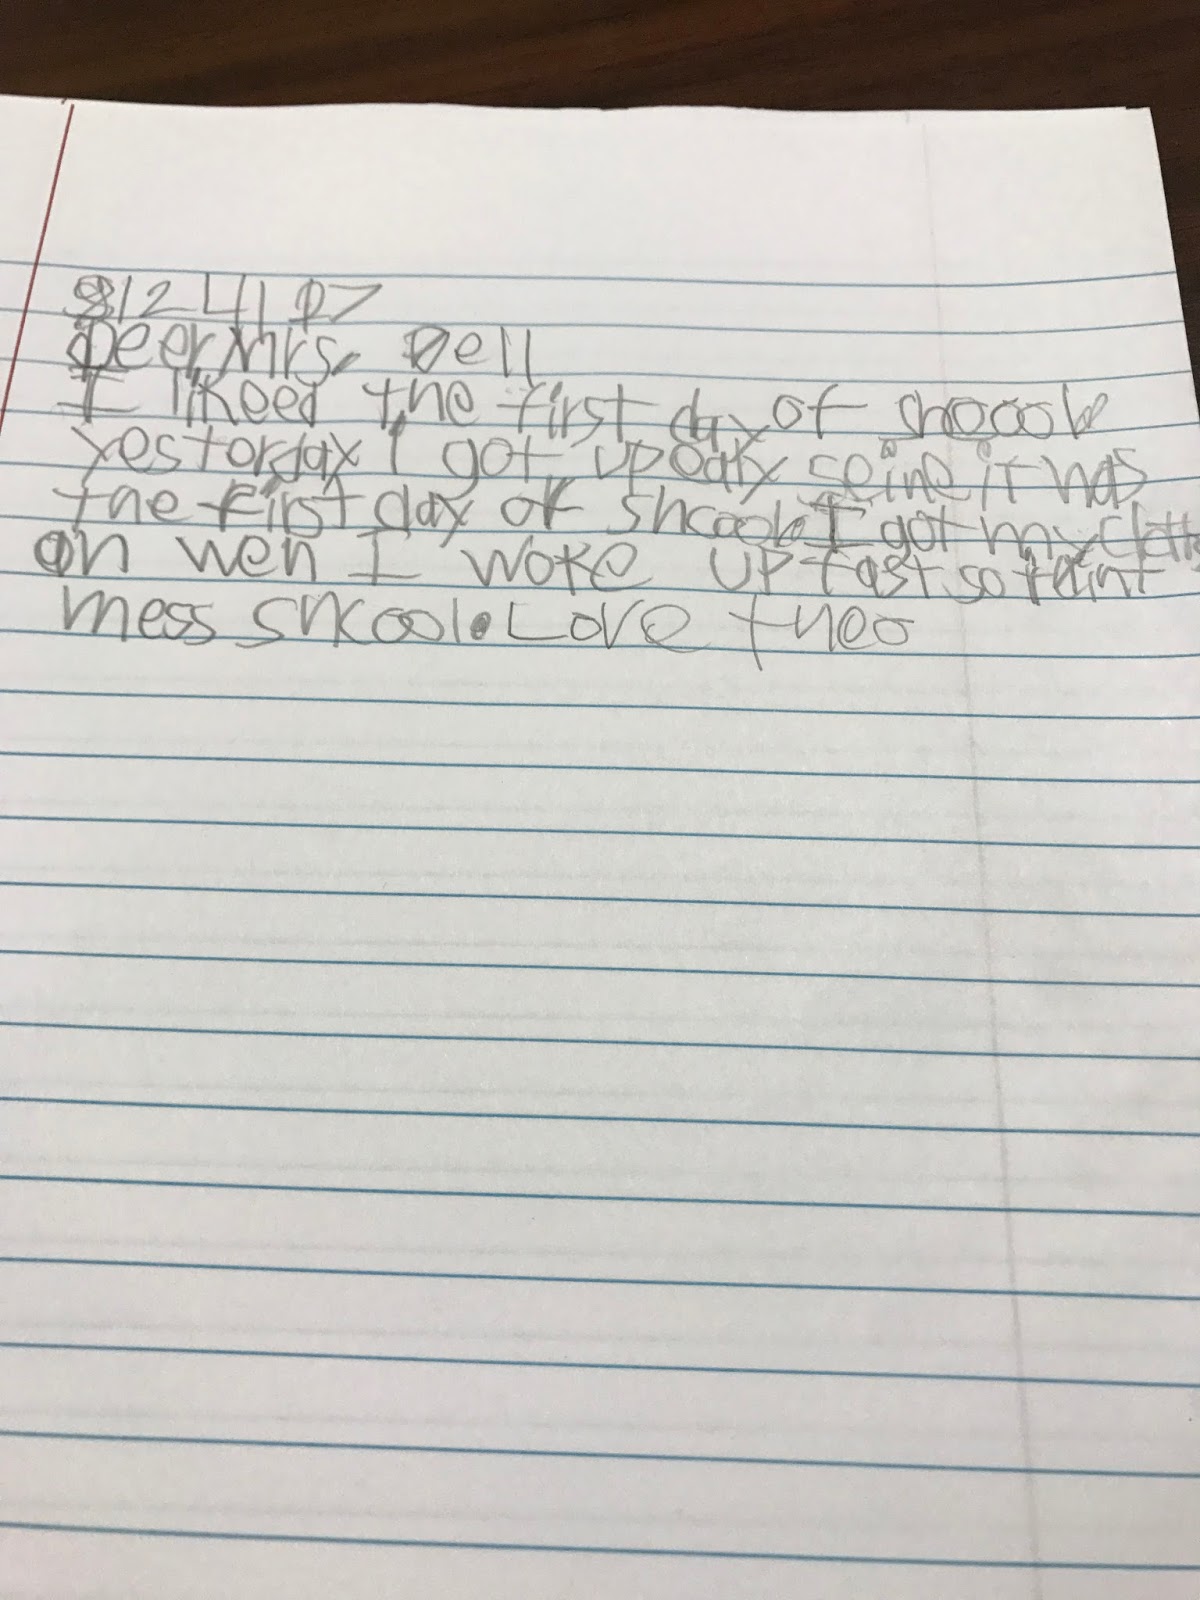 8/24/17
Deer Mrs. Dell
I likeed the first day of shcoole
yesterday I got up ealy seine it was
the first day of shcoole I got my cloths
on wen I woke up fast so I dint
mess shcool. Love theo